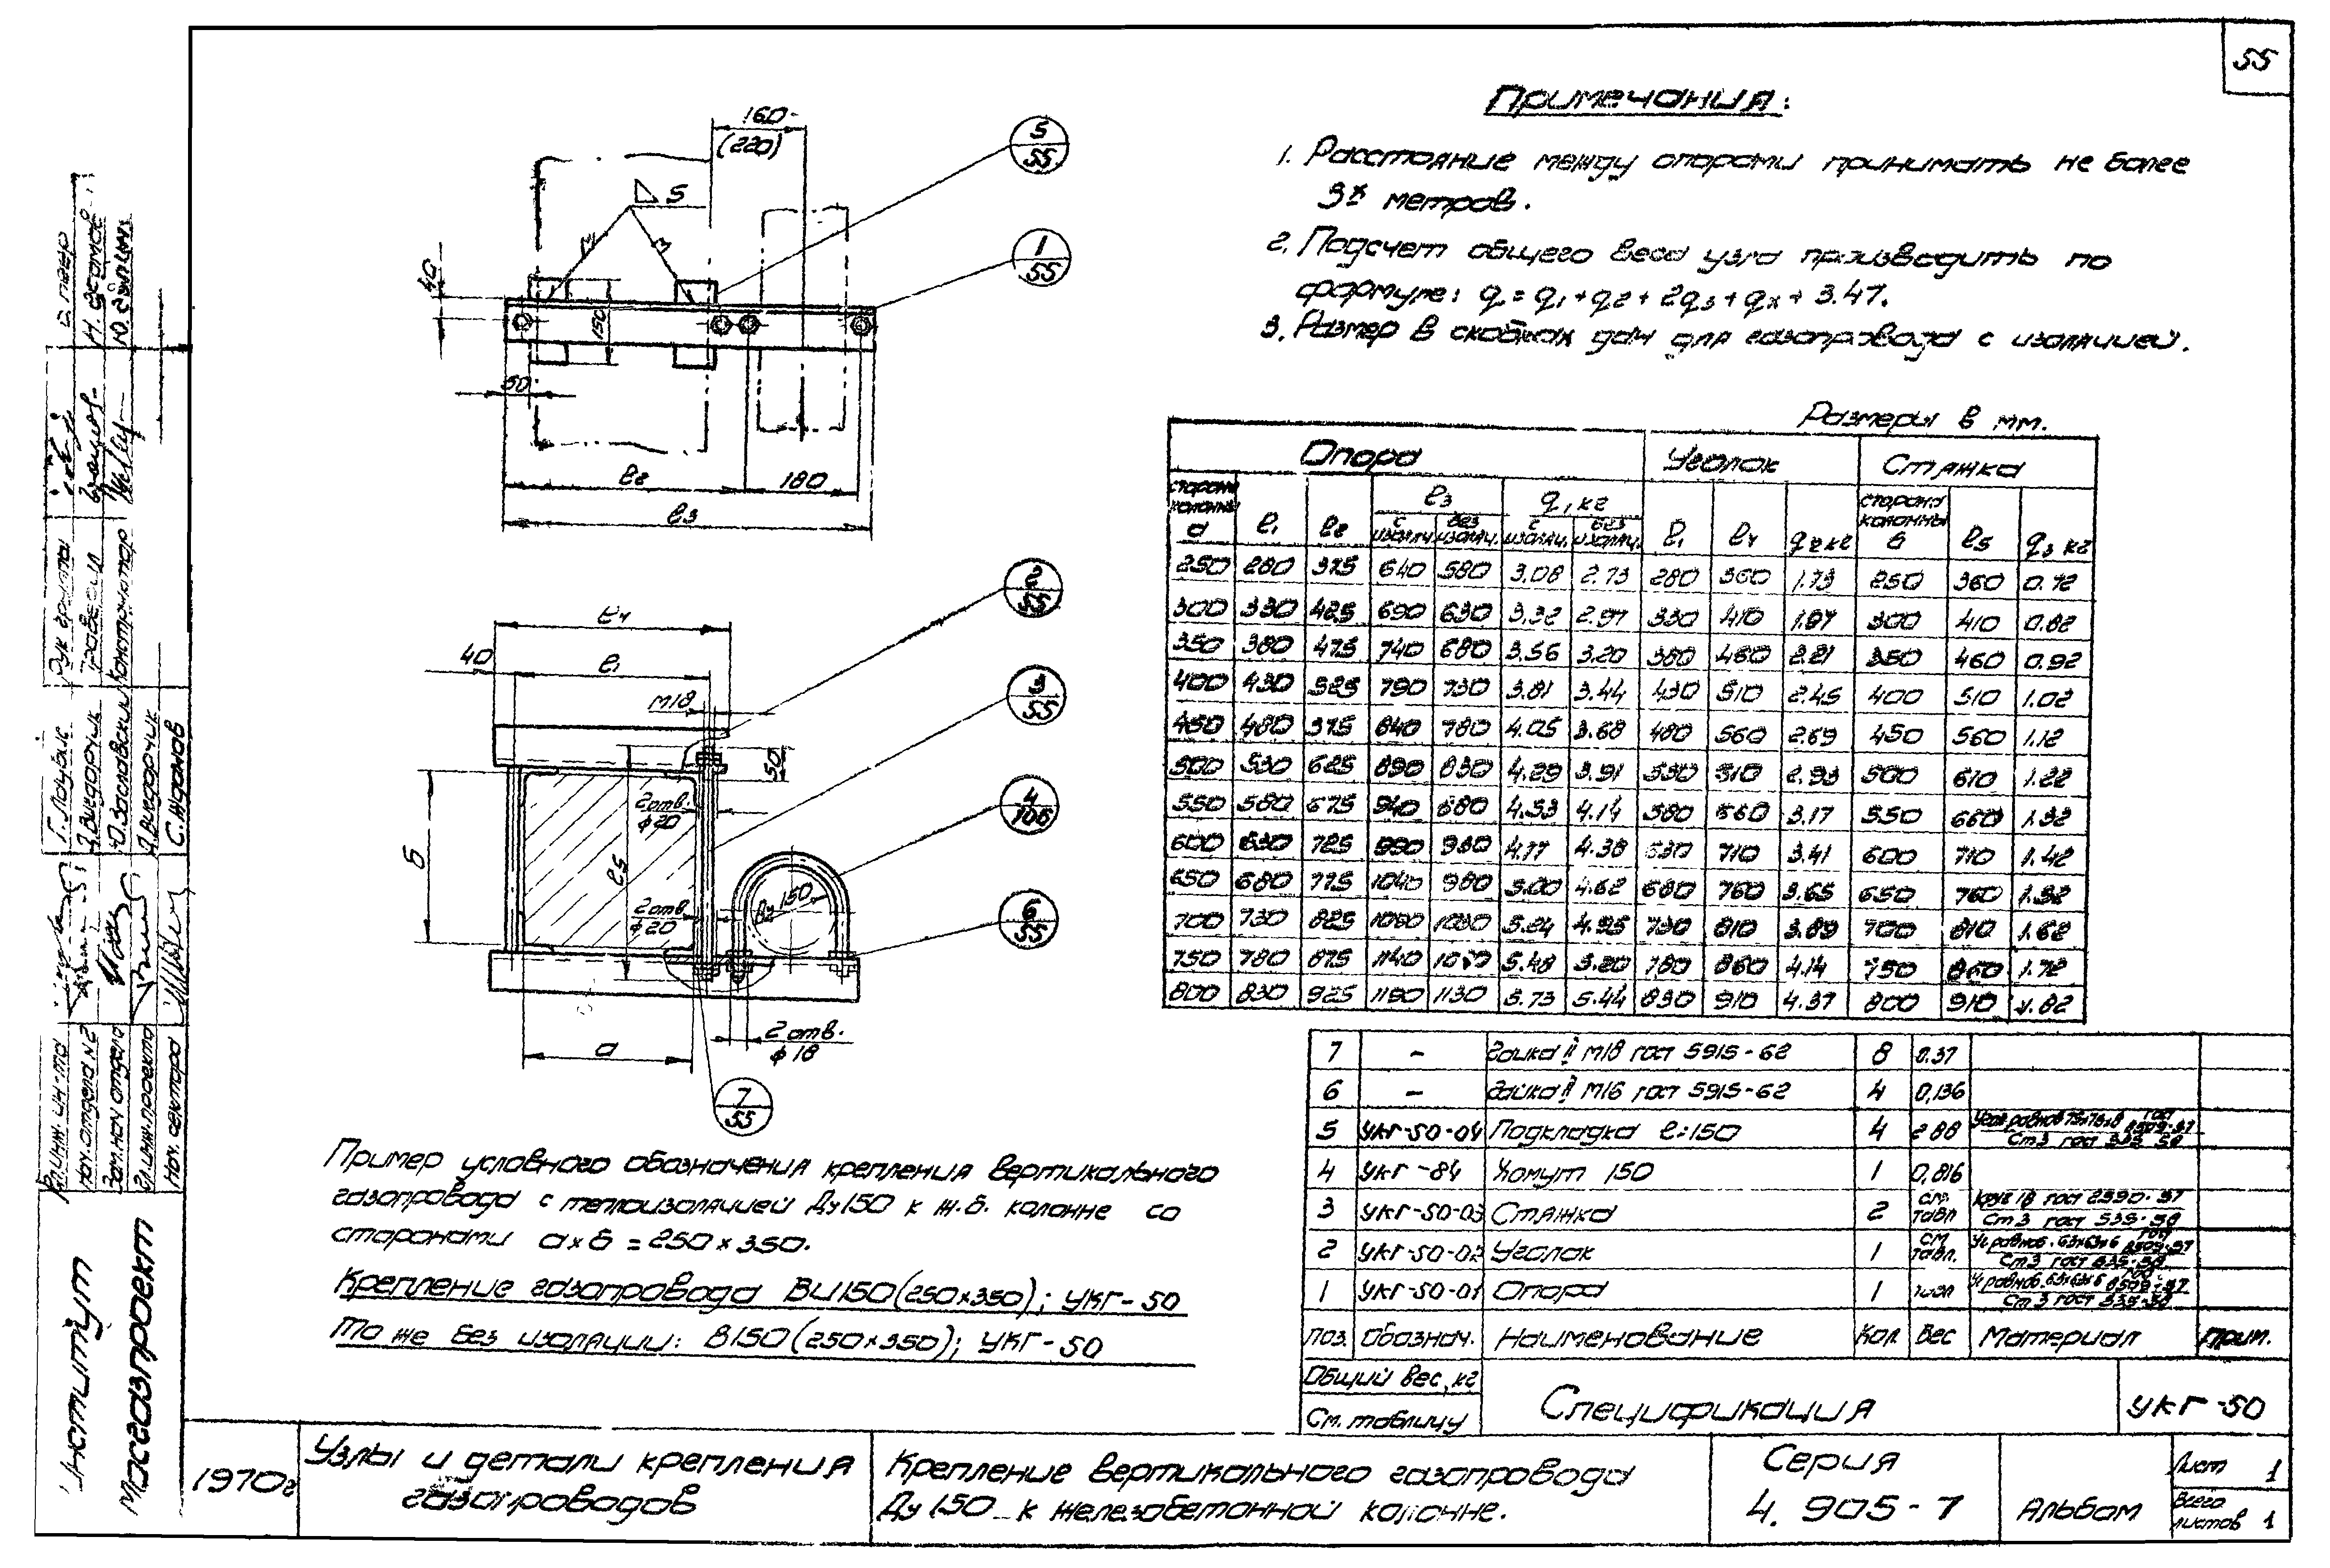 55
Примечания:
1. Расстояние между опорами принимать не более
3х метров.
2. Подсчет общего веса узла производить по
формуле: q = q1 + q2 + 2q3 + qx + 3.47.
3. Размер в скобках дан для газопровода с изоляцией.
160
(220)
5
55
5
1
55
40
150
50
l2
180
l3
2
55
l4
40
l1
М18
3
55
50
2 отв.
ф20
4
106
б
l5
Ду 150
2 отв.
ф20
6
55
2 отв.
ф18
а
7
55
Размеры в мм.
Опора Уголок Стяжка
сторона колонны а l1 l2 l3 q, кг l1 l4 q2 кг сторона колонны б l5 q3 кг
с изоляц. без изоляц. с изоляц. без изоляц.
250 280 375 640 580 3.08 2.73 280 360 1.73 250 360 0.72
300 330 425 690 630 3.32 2.97 330 410 1.97 300 410 0.82
350 380 475 740 680 3.56 3.20 380 460 2.21 350 460 0.92
400 430 525 790 730 3.81 3.44 430 510 2.45 400 510 1.02
450 480 575 840 780 4.05 3.68 480 560 2.69 450 560 1.12
500 530 625 890 830 4.29 3.91 530 610 2.93 500 610 1.22
550 580 675 940 880 4.53 4.14 580 660 3.17 550 660 1.32
600 630 725 990 930 4.77 4.38 630 710 3.41 600 710 1.42
650 680 775 1040 980 5.00 4.62 680 760 3.65 650 760 1.52
700 730 825 1090 1030 5.24 4.95 730 810 3.89 700 810 1.62
750 780 875 1140 1080 5.48 5.20 780 860 4.14 750 860 1.72
800 830 925 1190 1130 5.73 5.44 830 910 4.37 800 910 1.82
7 - Гайка II М18 гост 5915-62 8 0.37
6 - Гайка II М16 гост 5915-62 4 0,136
5 УКГ-50-04 Подкладка l=150 4 2.88 Угол. равноб 75х75х8 гост 8509-57 Ст3 гост 535-58
4 УКГ-84 Хомут 150 1 0,816
3 УКГ-50-03 Стяжка 2 см. табл Круг 18 гост 2590-57 Ст3 гост 535-58
2 УКГ-50-02 Уголок 1 см табл. Уг равноб. 63х63х6 гост 8509-57 Ст3 гост 535-58
1 УКГ-50-01 Опора 1 табл Уг равноб. 63х63х6 гост 8509-57 Ст3 гост 535-58
поз. Обознач. Наименование Кол. Вес Материал Прим.
Общий вес, кг
См. таблицу
Спецификация
УКГ-50
Пример условного обозначения крепления вертикального
газопровода с теплоизоляцией Ду150 к ж.б. колонне со
сторонами а х б = 250 х 350.
Крепление газопровода ВИ150(250х350); УКГ-50
То же без изоляции: В150(250х350); УКГ-50
1970г
Узлы и детали крепления
газопроводов
Крепление вертикального газопровода
Ду 150 к железобетонной колонне.
Серия
4. 905-7
Альбом
Лист 1
Всего листов 1
Институт
Мосгазпроект
Гл. инж. ин-та
нач. отдела №2
Зам. нач отдела
Гл. инж. проекта
Нач. сектора
Г. Лаубис
Ю. Заславский
С. Жданов
Рук. группы
Проверил
Конструктор